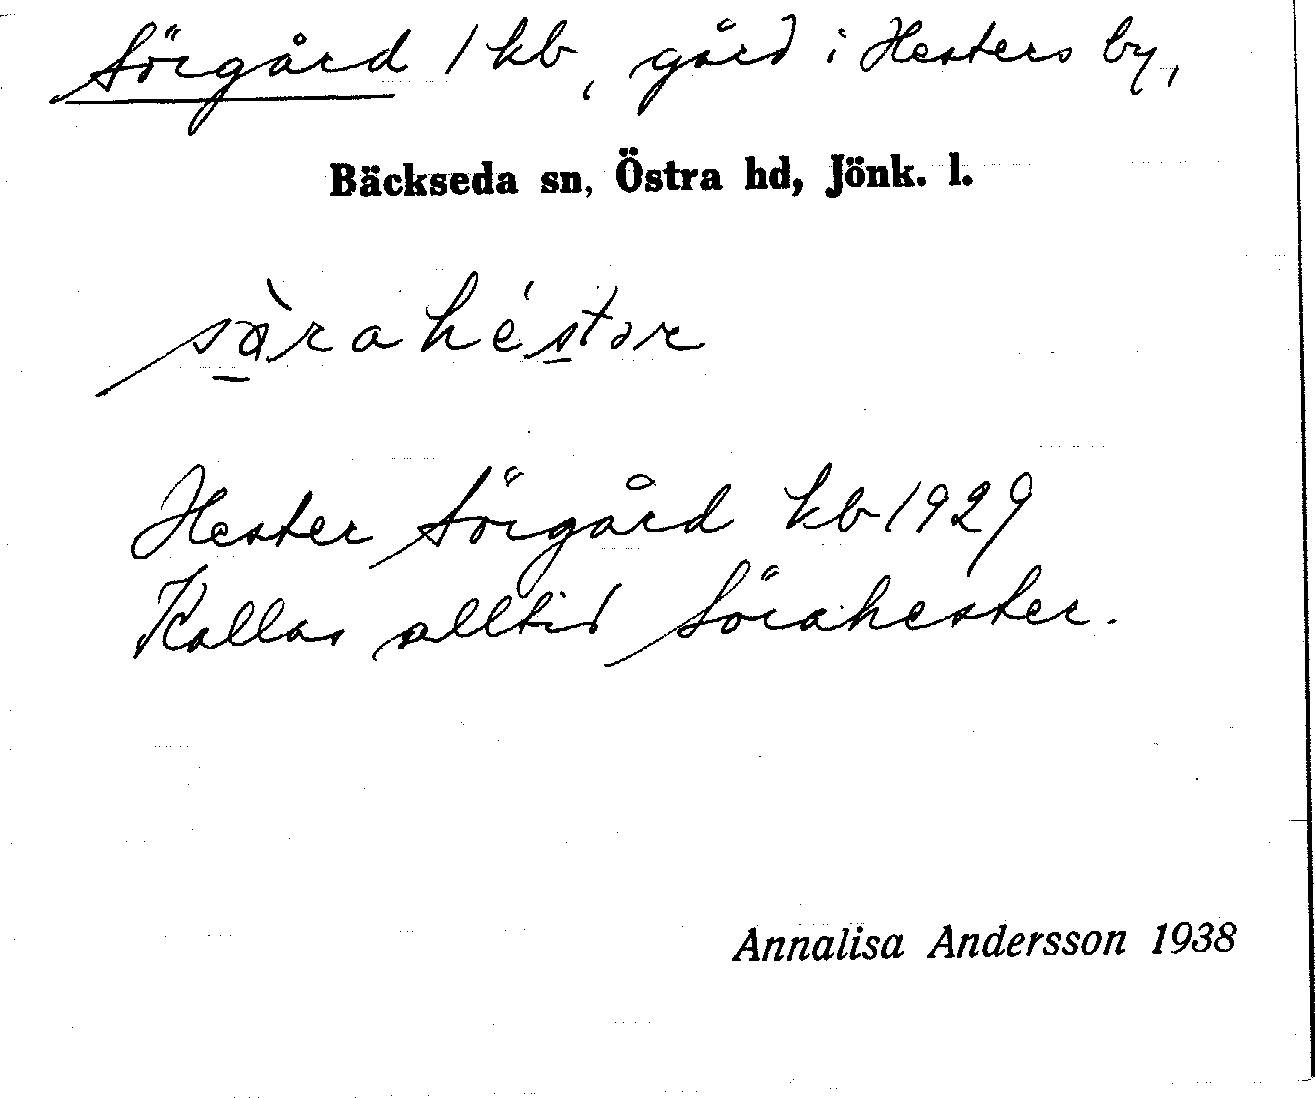 Sörgård 1 kb, gård i Hesters by,
Bäckseda sn, Östra hd, Jönk. l.
sɑ̠̀rahés̠tər
Hester Sörgård kb 1929
Kallas alltid Sörahester.
Annalisa Andersson 1938